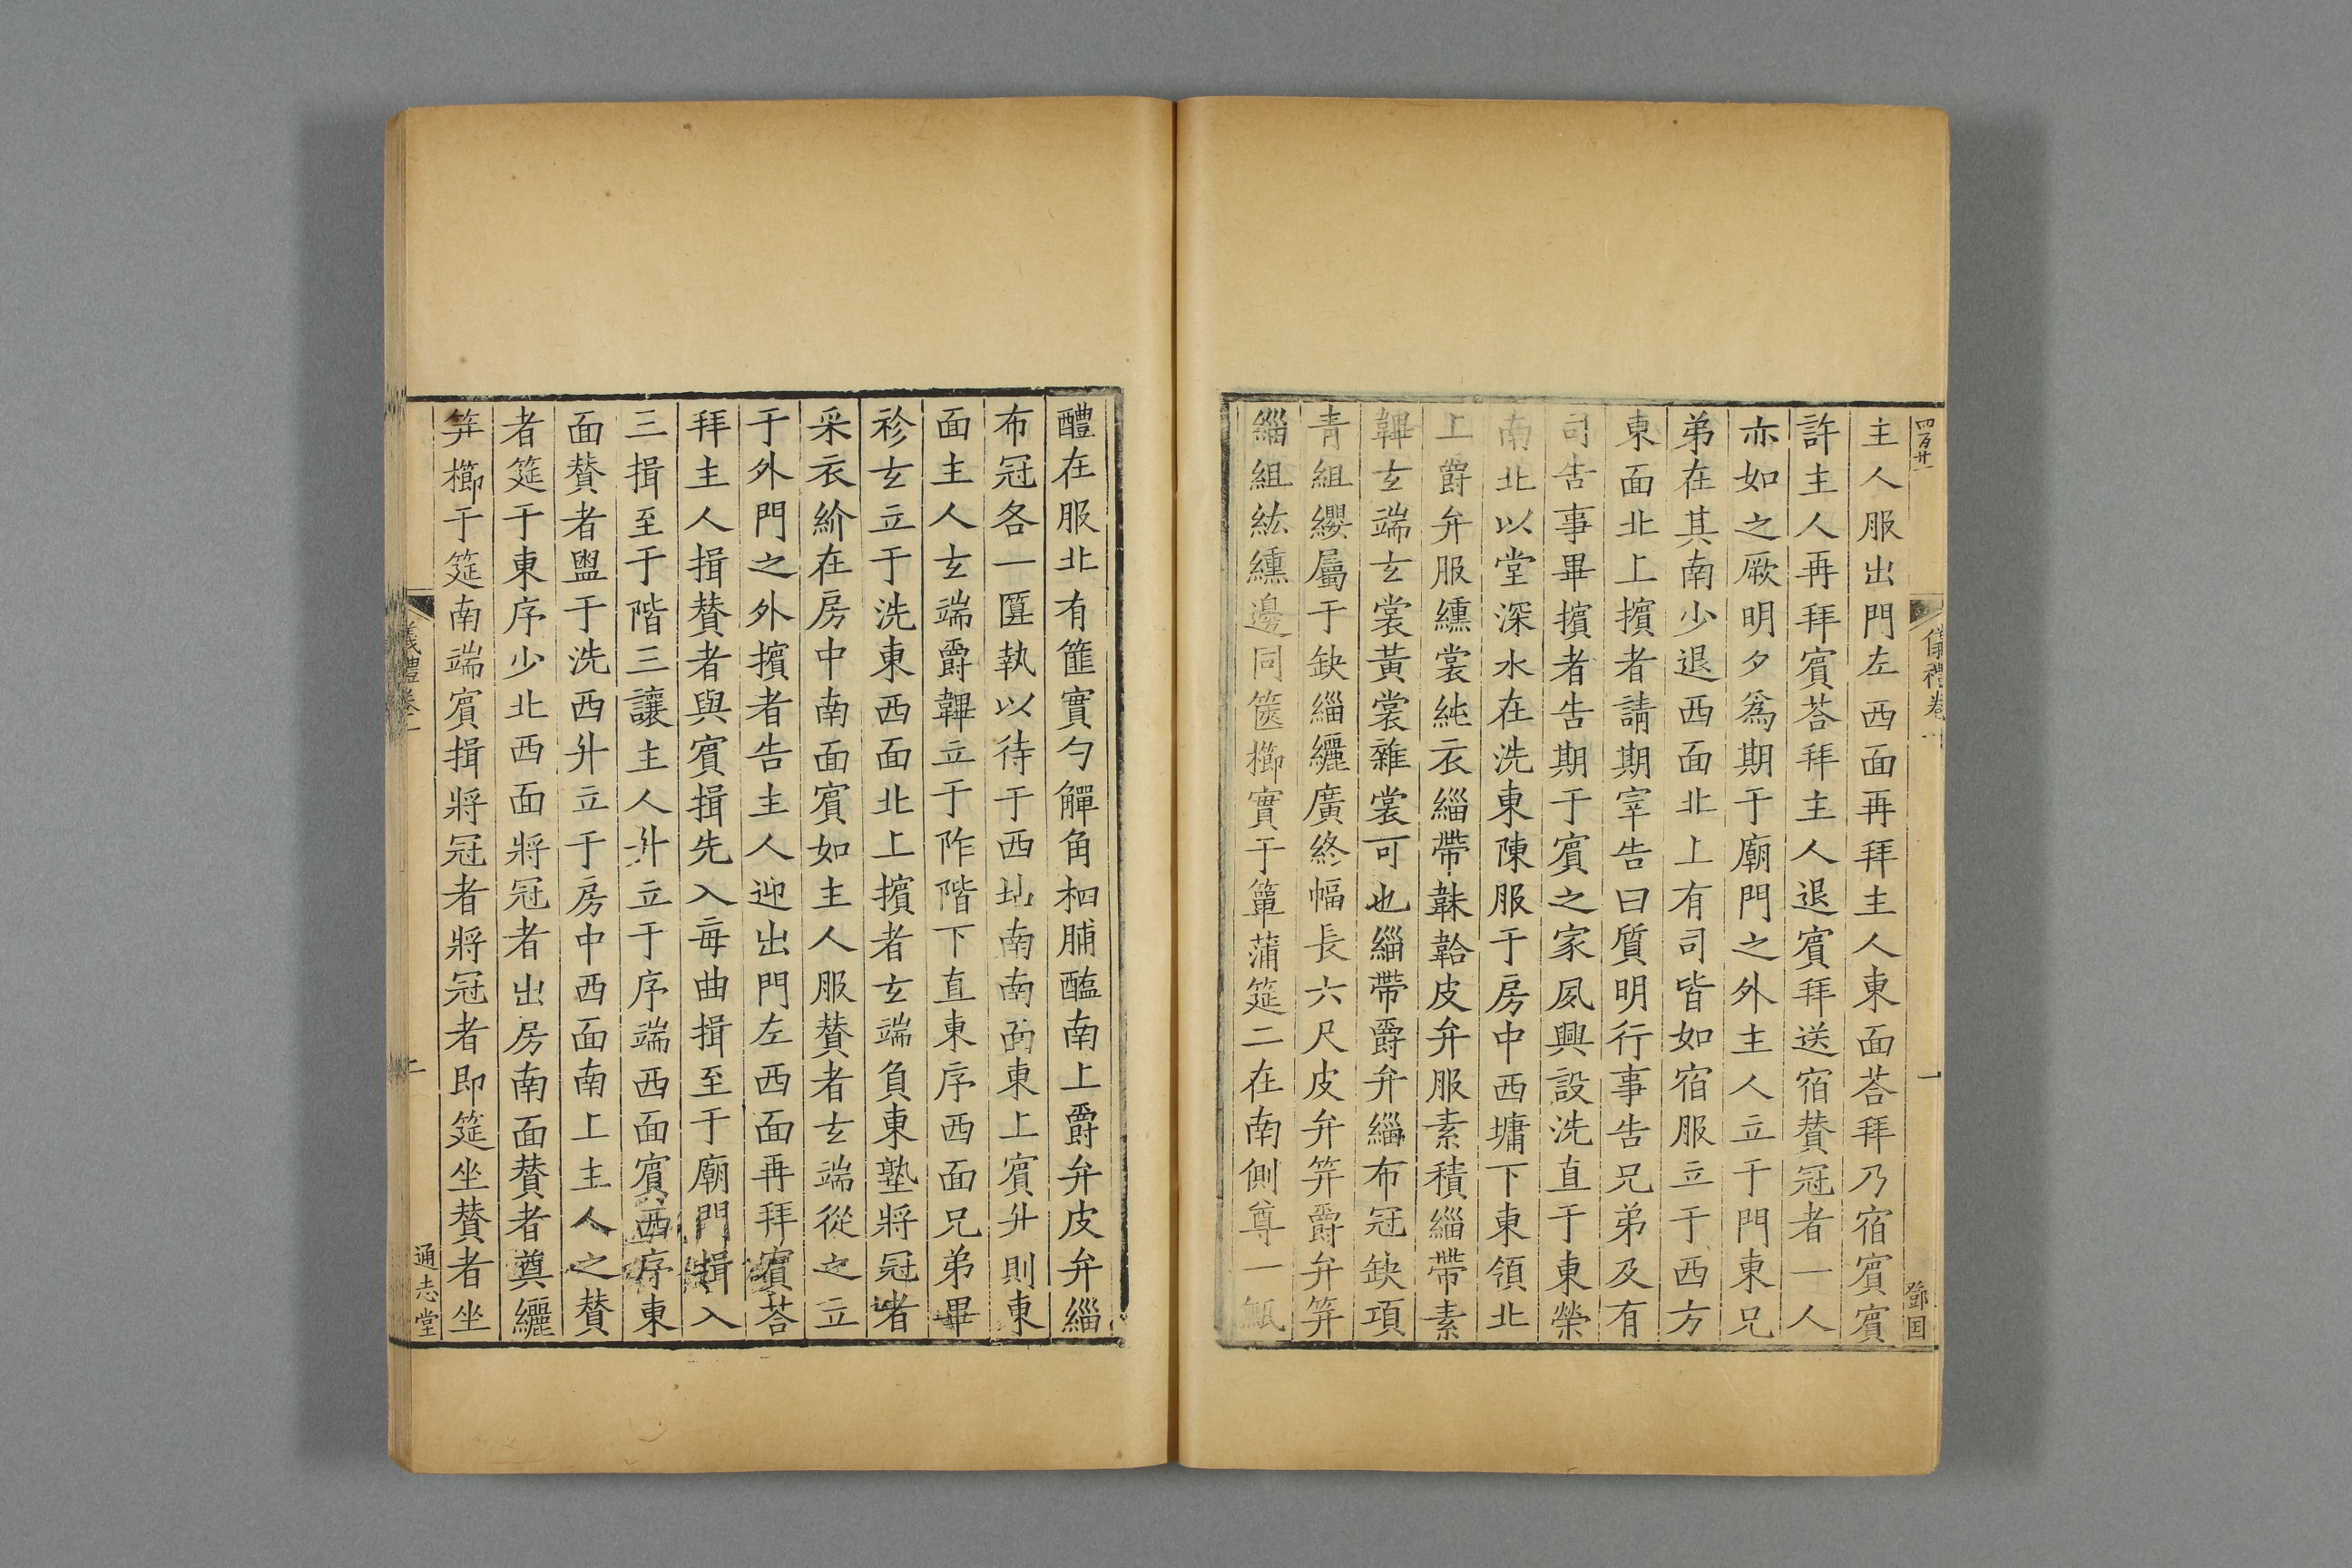 四百廿一
儀禮卷一
一
鄧国
主人服出門左西面再拜主人東面荅拜乃宿賓賓
許主人再拜賓荅拜主人退賓拜送宿賛冠者一人
亦如之厥明夕爲期于廟門之外主人立于門東兄
弟在其南少退西面北上有司皆如宿服立于西方
東面北上擯者請期宰告曰質明行事告兄弟及有
司告事畢擯者告期于賓之家夙興設洗直于東榮
南北以堂深水在洗東陳服于房中西墉下東領北
上爵弁服纁裳純衣緇帶韎韐皮弁服素積緇帶素
韠玄端玄裳黃裳雜裳可也緇帶爵弁緇布冠缺項
青組纓屬于缺緇纚廣終幅長六尺皮弁笄爵弁笄
緇組紘纁邊同篋櫛實于簞蒲筵二在南側尊一甒
醴在服北有篚實勺觶角柶脯醢南上爵弁皮弁緇
布冠各一匴執以待于西坫南南面東上賓升則東
面主人玄端爵韠立于阼階下直東序西面兄弟畢
袗玄立于洗東西面北上擯者玄端負東塾將冠者
采衣紒在房中南面賓如主人服賛者玄端從之立
于外門之外擯者告主人迎出門左西面再拜賓荅
拜主人揖賛者與賓揖先入每曲揖至于廟門揖入
三揖至于階三讓主人升立于序端西面賓西序東
面賛者盥于洗西升立于房中西面南上主人之賛
者筵于東序少北西面將冠者出房南面賛者奠纚
笄櫛于筵南端賓揖將冠者將冠者即筵坐賛者坐
儀禮卷一
二
通志堂